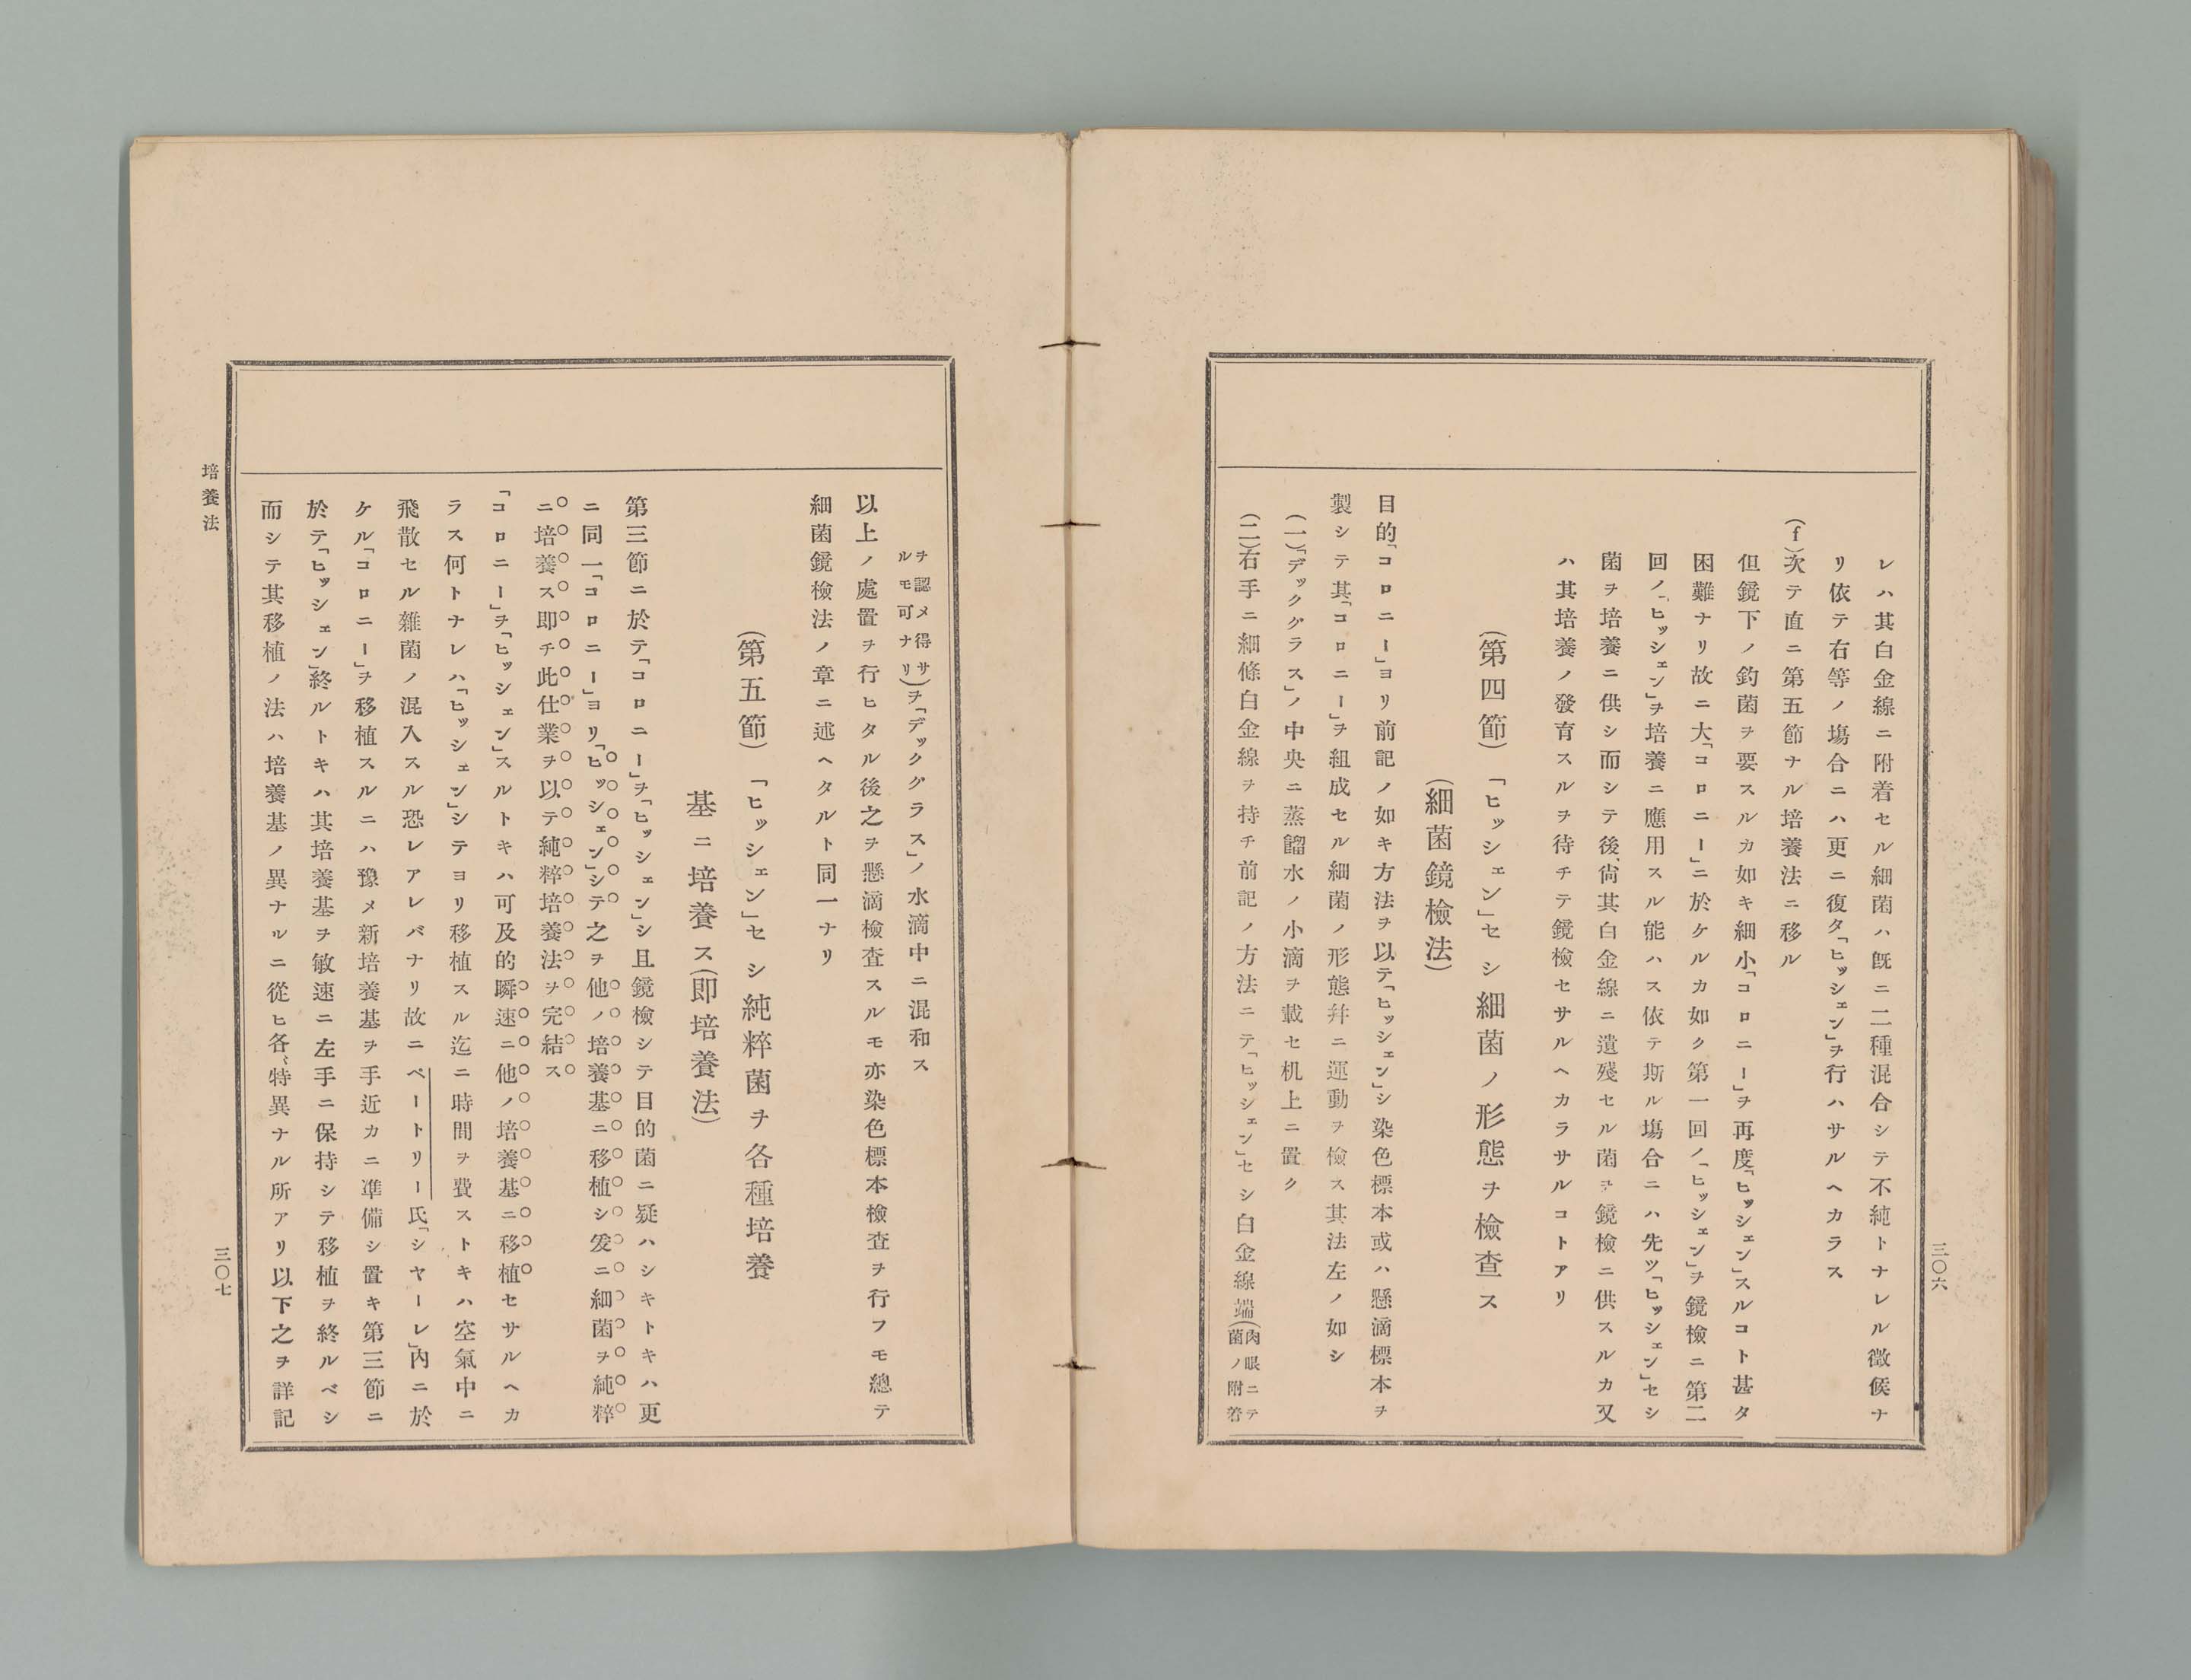 レハ其白金線ニ附着セル細菌ハ既ニ二種混合シテ不純トナレル徴候ナ
リ依テ右等ノ塲合ニハ更ニ復タ「ヒッシェン」ヲ行ハサルヘカラス
(f)次テ直ニ第五節ナル培養法ニ移ル
但鏡下ノ釣菌ヲ要スルカ如キ細小「コロニー」ヲ再度「ヒッシェン」スルコト甚タ
困難ナリ故ニ大「コロニー」ニ於ケルカ如ク第一回ノ「ヒッシェン」ヲ鏡檢ニ第二
回ノ「ヒッシェン」ヲ培養ニ應用スル能ハス依テ斯ル塲合ニハ先ツ「ヒッシェン」セシ
菌ヲ培養ニ供シ而シテ後、尙其白金線ニ遺殘セル菌ヲ鏡檢ニ供スルカ又
ハ其培養ノ發育スルヲ待チテ鏡檢セサルヘカラサルコトアリ
(第四節)「ヒッシェン」セシ細菌ノ形態ヲ檢査ス
(細菌鏡檢法)
目的「コロニー」ヨリ前記ノ如キ方法ヲ以テ「ヒッシェン」シ染色標本或ハ懸滴標本ヲ
製シテ其「コロニー」ヲ組成セル細菌ノ形態幷ニ運動ヲ檢ス其法左ノ如シ
(一)「デックグラス」ノ中央ニ蒸餾水ノ小滴ヲ載セ机上ニ置ク
(二)右手ニ細條白金線ヲ持チ前記ノ方法ニテ「ヒッシェン」セシ白金線端(肉眼ニテ
菌ノ附着
三〇六
ヲ認メ得サ
ルモ可ナリ)ヲ「デックグラス」ノ水滴中ニ混和ス
以上ノ處置ヲ行ヒタル後之ヲ懸滴檢査スルモ亦染色標本檢査ヲ行フモ總テ
細菌鏡檢法ノ章ニ述ヘタルト同一ナリ
(第五節)「ヒッシェン」セシ純粹菌ヲ各種培養
基ニ培養ス(即培養法)
第三節ニ於テ「コロニー」ヲ「ヒッシェン」シ且鏡檢シテ目的菌ニ疑ハシキトキハ更
ニ同一「コロニー」ヨリ「ヒッシェン」シテ之ヲ他ノ培養基ニ移植シ爰ニ細菌ヲ純粹
ニ培養ス即チ此仕業ヲ以テ純粹培養法ヲ完結ス
「コロニー」ヲ「ヒッシェン」スルトキハ可及的瞬速ニ他ノ培養基ニ移植セサルヘカ
ラス何トナレハ「ヒッシェン」シテヨリ移植スル迄ニ時間ヲ費ストキハ空氣中ニ
飛散セル雜菌ノ混入スル恐レアレバナリ故ニペートリー氏「シヤーレ」內ニ於
ケル「コロニー」ヲ移植スルニハ豫メ新培養基ヲ手近カニ凖備シ置キ第三節ニ
於テ「ヒッシェン」終ルトキハ其培養基ヲ敏速ニ左手ニ保持シテ移植ヲ終ルベシ
而シテ其移植ノ法ハ培養基ノ異ナルニ從ヒ各〻特異ナル所アリ以下之ヲ詳記
培養法
三〇七